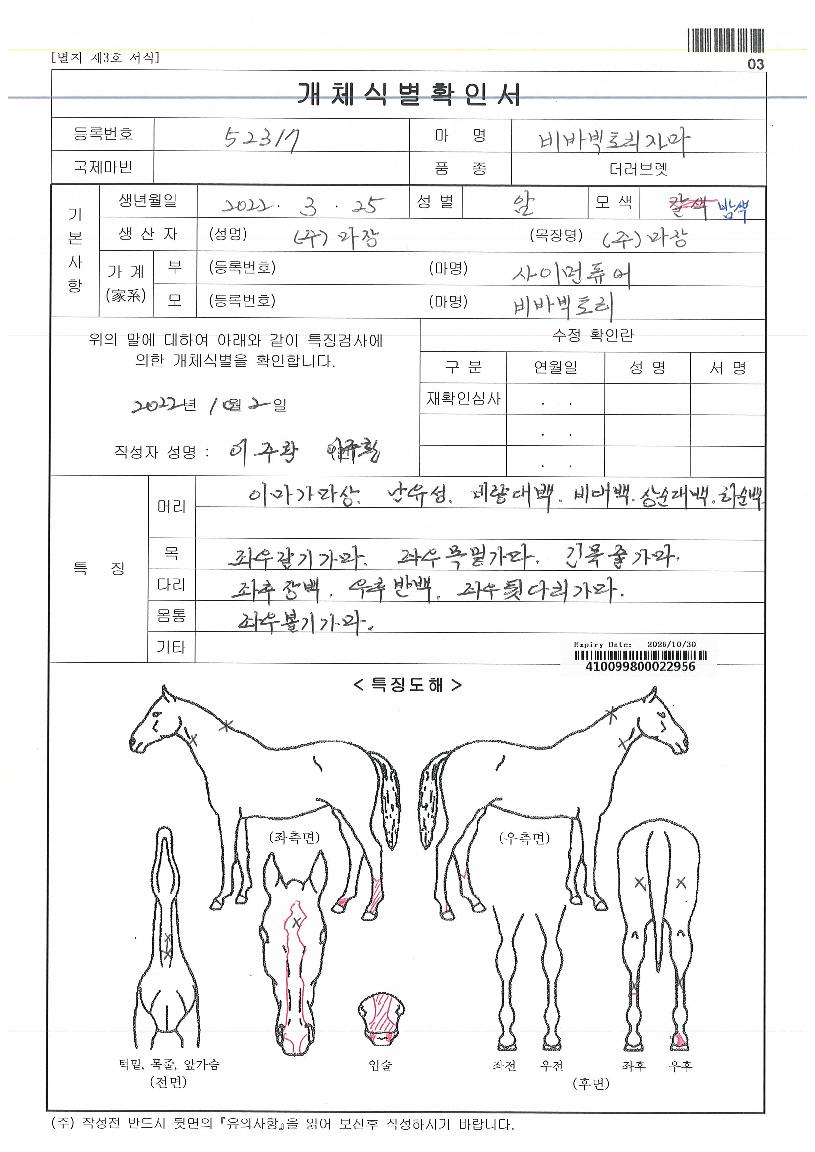 03
[별지 제3호 서식]
개체식별확인서
등록번호 52317 마 명 비바빅토리자마
국제마번 품 종 더러브렛
기본사항
생년월일 2022. 3. 25 성별 암 모색 갈색 밤색
생산자 (성명) (주)라장 (목장명) (주)라장
가계 (家系) 부 (등록번호) (마명) 사이먼퓨어
모 (등록번호) (마명) 비바빅토리
위의 말에 대하여 아래와 같이 특징검사에
의한 개체식별을 확인합니다.
2022년 10월 2일
작성자 성명 : 이주확
수정 확인란
구분 연월일 성명 서명
재확인심사 . .
. .
. .
특징
머리 이마가마상. 난유성. 비량대백. 비대백. 상순대백. 하순백
목 좌우갈기가마. 좌우목밑가마. 긴목줄가마.
다리 좌후장백. 우후반백. 좌우뒷다리가마.
몸통 좌우볼기가마.
기타
Expiry Date: 2026/10/30
410099800022956
< 특징도해 >
(좌측면) (우측면)
턱밑, 목줄, 앞가슴 입술 좌전 우전 좌후 우후
(전면) (후면)
(주) 작성전 반드시 뒷면의 『유의사항』을 읽어 보신후 작성하시기 바랍니다.